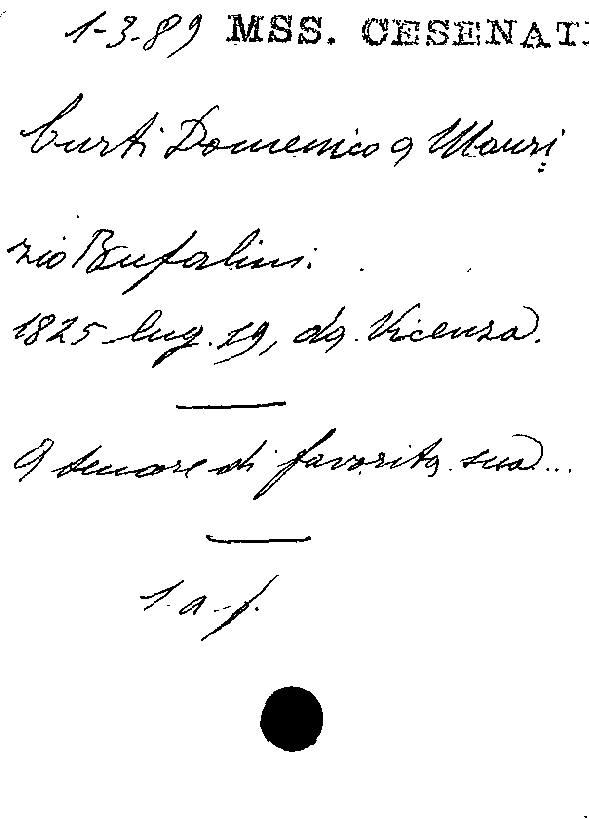 1-3-89 MSS. CESENATI
Curti Domenico a Mauri
zio Bufalini.
1825 lug. 19, da Vicenza.
A tenore di favorita sua...
1. a. f.